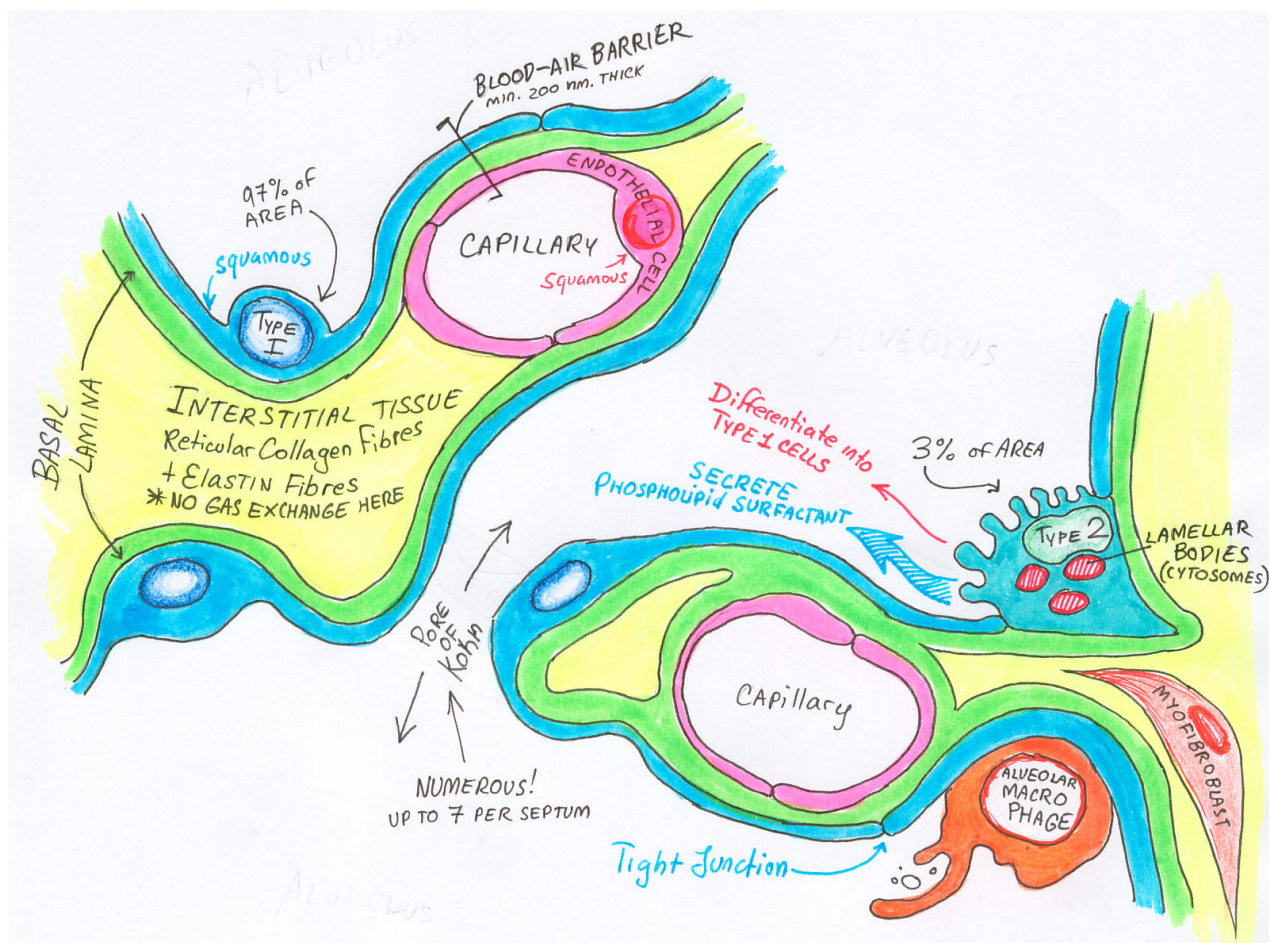 ALVEOLUS
BLOOD-AIR BARRIER
MIN. 200 nm. THICK
97% OF
AREA
squamous
TYPE
I
ENDOTHELIAL CELL
CAPILLARY
Squamous
BASAL
LAMINA
INTERSTITIAL TISSUE
Reticular Collagen Fibres
+ ELASTIN FIBRES
* NO GAS EXCHANGE HERE
ALVEOLUS
Differentiate into
TYPE 1 CELLS
SECRETE
PHOSPHOLIPID SURFACTANT
3% OF AREA
TYPE 2
LAMELLAR
BODIES
(CYTOSOMES)
PORE
OF
KOHN
NUMEROUS!
UP TO 7 PER SEPTUM
CAPillary
MYOFIBROBLAST
ALVEOLAR
MACRO
PHAGE
Tight Junction
ALVEOLUS